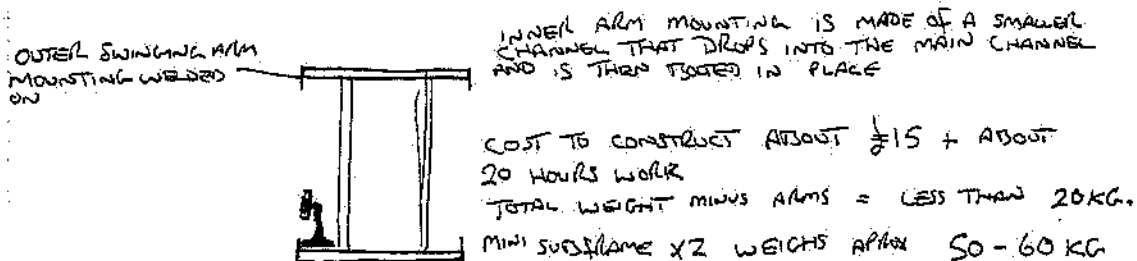 OUTER SWINGING ARM
MOUNTING WELDED
ON
INNER ARM MOUNTING IS MADE OF A SMALLER
CHANNEL THAT DROPS INTO THE MAIN CHANNEL
AND IS THEN BOLTED IN PLACE
COST TO CONSTRUCT ABOUT £15 + ABOUT
20 HOURS WORK
TOTAL WEIGHT MINUS ARMS = LESS THAN 20KG.
MINI SUBFRAME X2 WEIGHS APROX 50-60 KG